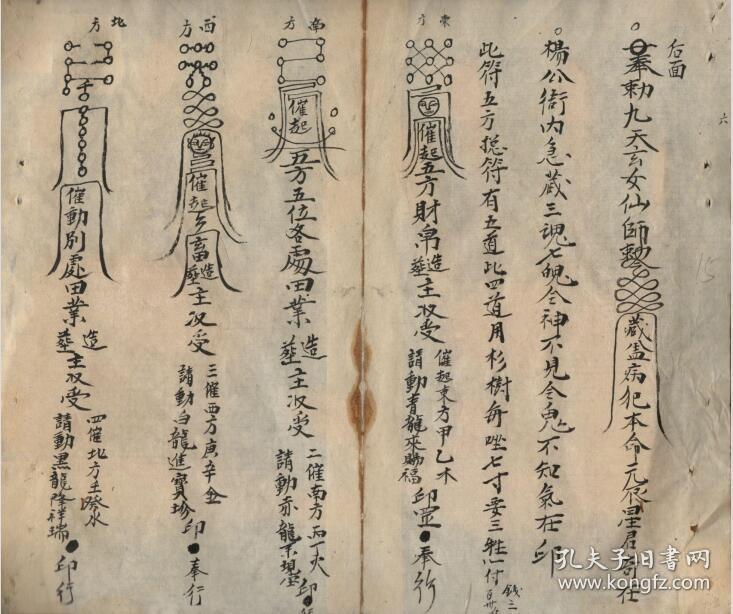 后面
奉勅九天玄女仙師勅 藏蓋病犯本命元辰星君寄在
楊公衙內急藏三魂七魄令神不見令鬼不知氣在 印
此符五方總符有五道此四道用杉樹每 七寸要三牲付
錢三百
東方
催起五方財帛造葬主收受 催起東方甲乙木 請動青龍來賜福 印 奉行
南方
催起五方五位各處田業造葬主收受 二催南方丙丁火 請動赤龍 印
西方
催起六畜造葬主收受 三催西方庚辛金 請動白龍進寶珍 印 奉行
北方
催動別處田業造葬主收受 四催北方壬癸水 請動黑龍降祥瑞 印行
六
15
孔夫子旧书网
www.kongfz.com